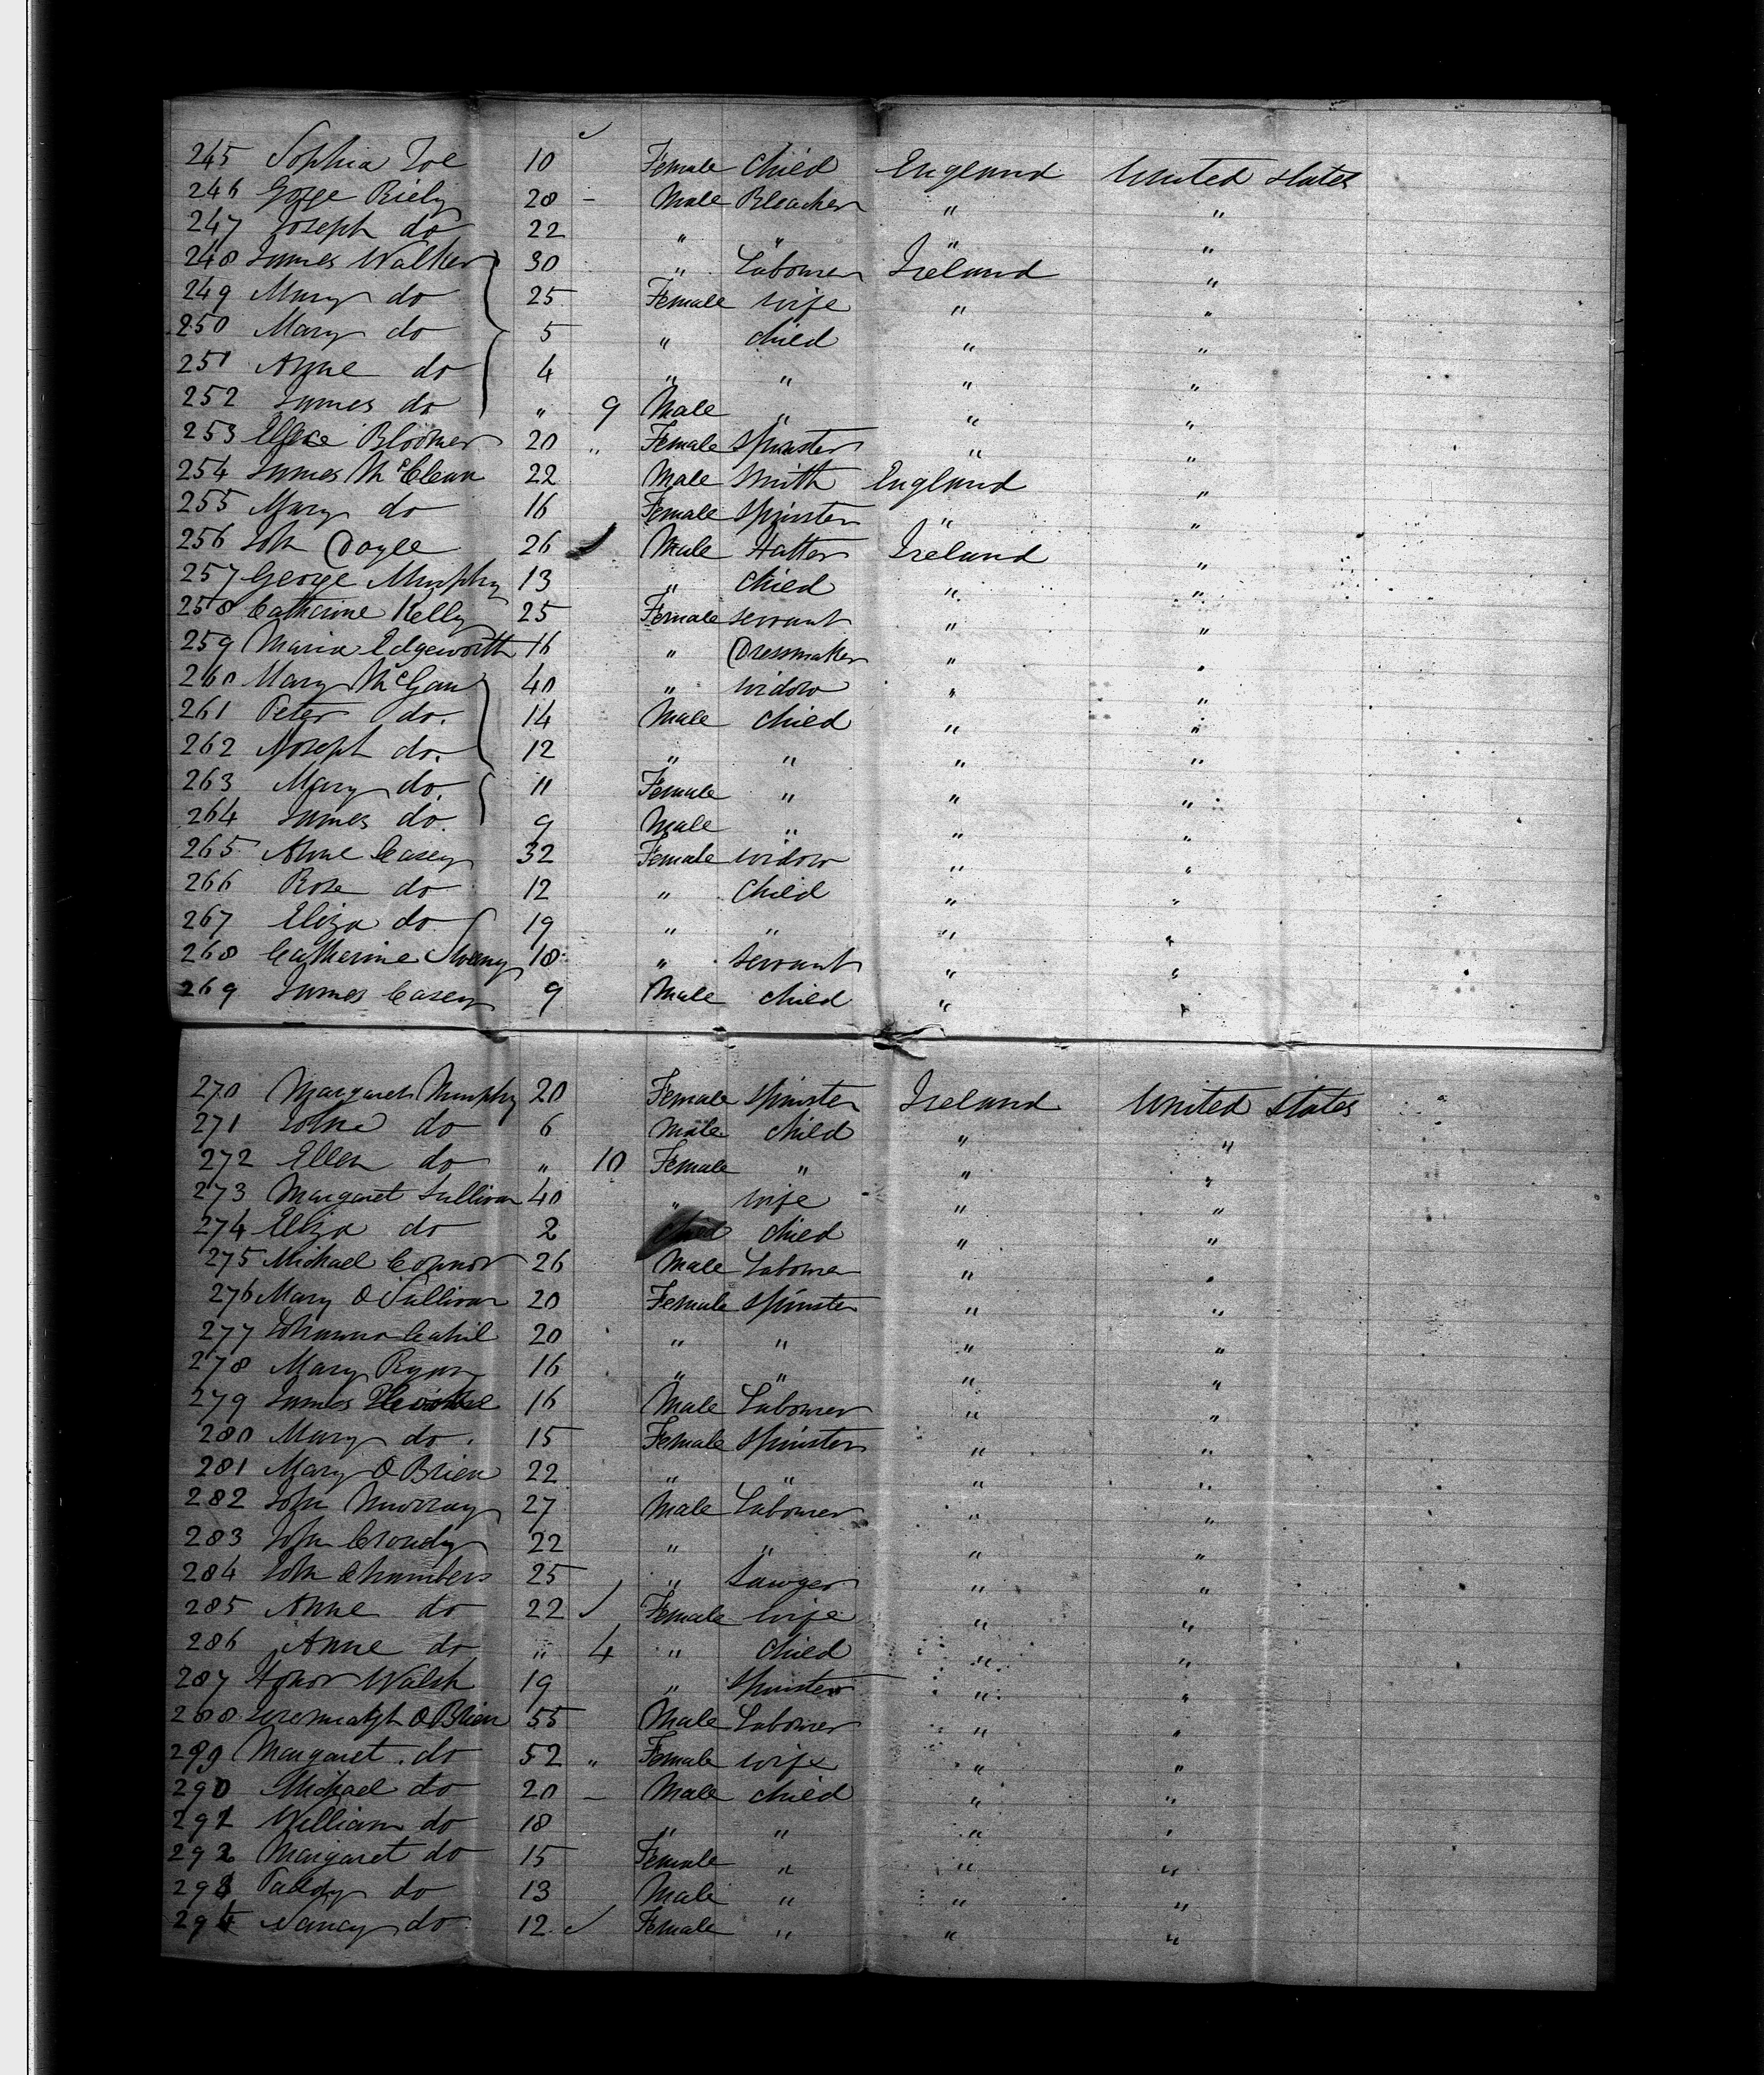 245 Sophia Zoe 10 Female Child England United States
246 Gorge Riely 28 – Male Bleacher " "
247 Joseph do 22 " " " "
248 James Walker 30 " Labourer Ireland "
249 Mary do 25 Female wife " "
250 Mary do 5 " child " "
251 Anne do 4 " " " "
252 James do " 9 Male " " "
253 Bloomer 20 " Female Spinster " "
254 James McClean 22 Male Smith England "
255 Mary do 16 Female Spinster " "
256 John Doyle 26 Male Hatter Ireland "
257 George Murphy 13 " Child " "
258 Catherine Kelly 25 Female servant " "
259 Maria Edgeworth 16 " Dressmaker " "
260 Mary McGan 40 " widow " "
261 Peter do. 14 Male Child " "
262 Joseph do. 12 " " " "
263 Mary do. 11 Female " " "
264 James do. 9 Male " " "
265 Anne Casey 32 Female widow " "
266 Rose do 12 " Child " "
267 Eliza do 19 " " " "
268 Catherine 18 " servant " "
269 James Casey 9 Male child " "
270 Margaret Murphy 20 Female Spinster Ireland United States
271 John do 6 Male child " "
272 Ellen do " 10 Female " " "
273 Margaret Sullivan 40 " wife " "
274 Eliza do 2 child " "
275 Michael Connor 26 Male Labourer " "
276 Mary O Sullivan 20 Female Spinster " "
277 Johanna Cahil 20 " " " "
278 Mary Ryan 16 " " " "
279 James 16 Male Labourer " "
280 Mary do. 15 Female Spinster " "
281 Mary O Brien 22 " " " "
282 John Murray 27 Male Labourer " "
283 John 22 " " " "
284 John Chambers 25 " Sawyer " "
285 Anne do 22 ✓ Female wife " "
286 Anne do " 4 " child " "
287 Honor Walsh 19 " Spinster " "
288 Jeremiah O Brien 55 Male Labourer " "
289 Margaret do 52 " Female wife " "
290 Michael do 20 – Male child " "
291 William do 18 " " " "
292 Margaret do 15 Female " " "
293 Paddy do 13 Male " " "
294 Nancy do 12 ✓ Female " " "